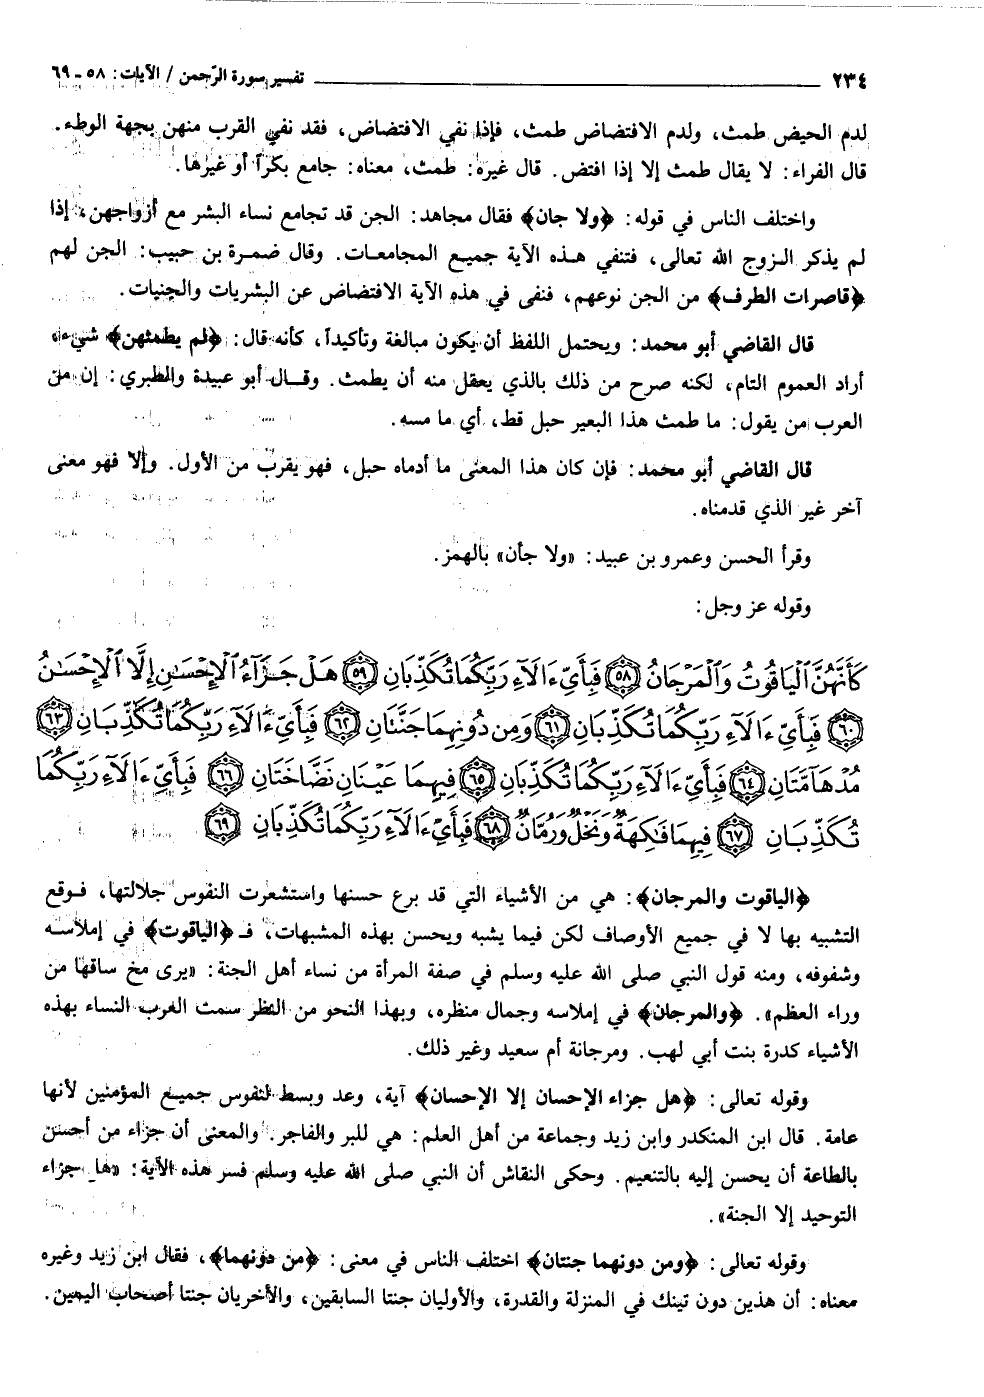 ٢٣٤ تفسير سورة الرّحمن / الآيات: ٥٨ - ٦٩
لدم الحيض طمث، ولدم الافتضاض طمث، فإذا نفي الافتضاض، فقد نفي القرب منهن بجهة الوطء.
قال الفراء: لا يقال طمث إلا إذا افتض. قال غيره: طمث، معناه: جامع بكراً أو غيرها.
واختلف الناس في قوله: ﴿ولا جان﴾ فقال مجاهد: الجن قد تجامع نساء البشر مع أزواجهن، إذا
لم يذكر الزوج الله تعالى، فتنفي هذه الآية جميع المجامعات. وقال ضمرة بن حبيب: الجن لهم
﴿قاصرات الطرف﴾ من الجن نوعهم، فنفى في هذه الآية الافتضاض عن البشريات والجنيات.
قال القاضي أبو محمد: ويحتمل اللفظ أن يكون مبالغة وتأكيداً، كأنه قال: ﴿لم يطمثهن﴾ شيء،
أراد العموم التام، لكنه صرح من ذلك بالذي يعقل منه أن يطمث. وقال أبو عبيدة والطبري: إن من
العرب من يقول: ما طمث هذا البعير حبل قط، أي ما مسه.
قال القاضي أبو محمد: فإن كان هذا المعنى ما أدماه حبل، فهو يقرب من الأول. وإلا فهو معنى
آخر غير الذي قدمناه.
وقرأ الحسن وعمرو بن عبيد: «ولا جأن» بالهمز.
وقوله عز وجل:
كَأَنَّهُنَّ ٱلْيَاقُوتُ وَٱلْمَرْجَانُ ﴿٥٨﴾ فَبِأَيِّ ءَالَآءِ رَبِّكُمَا تُكَذِّبَانِ ﴿٥٩﴾ هَلْ جَزَآءُ ٱلْإِحْسَٰنِ إِلَّا ٱلْإِحْسَٰنُ
﴿٦٠﴾ فَبِأَيِّ ءَالَآءِ رَبِّكُمَا تُكَذِّبَانِ ﴿٦١﴾ وَمِن دُونِهِمَا جَنَّتَانِ ﴿٦٢﴾ فَبِأَيِّ ءَالَآءِ رَبِّكُمَا تُكَذِّبَانِ ﴿٦٣﴾
مُدْهَآمَّتَانِ ﴿٦٤﴾ فَبِأَيِّ ءَالَآءِ رَبِّكُمَا تُكَذِّبَانِ ﴿٦٥﴾ فِيهِمَا عَيْنَانِ نَضَّاخَتَانِ ﴿٦٦﴾ فَبِأَيِّ ءَالَآءِ رَبِّكُمَا
تُكَذِّبَانِ ﴿٦٧﴾ فِيهِمَا فَٰكِهَةٌ وَنَخْلٌ وَرُمَّانٌ ﴿٦٨﴾ فَبِأَيِّ ءَالَآءِ رَبِّكُمَا تُكَذِّبَانِ ﴿٦٩﴾
﴿الياقوت والمرجان﴾: هي من الأشياء التي قد برع حسنها واستشعرت النفوس جلالتها، فوقع
التشبيه بها لا في جميع الأوصاف لكن فيما يشبه ويحسن بهذه المشبهات، فـ ﴿الياقوت﴾ في إملاسه
وشفوفه، ومنه قول النبي صلى الله عليه وسلم في صفة المرأة من نساء أهل الجنة: «يرى مخ ساقها من
وراء العظم». ﴿والمرجان﴾ في إملاسه وجمال منظره، وبهذا النحو من النظر سمت العرب النساء بهذه
الأشياء كدرة بنت أبي لهب. ومرجانة أم سعيد وغير ذلك.
وقوله تعالى: ﴿هل جزاء الإحسان إلا الإحسان﴾ آية، وعد وبسط لنفوس جميع المؤمنين لأنها
عامة. قال ابن المنكدر وابن زيد وجماعة من أهل العلم: هي للبر والفاجر. والمعنى أن جزاء من أحسن
بالطاعة أن يحسن إليه بالتنعيم. وحكى النقاش أن النبي صلى الله عليه وسلم فسر هذه الآية: «هل جزاء
التوحيد إلا الجنة».
وقوله تعالى: ﴿ومن دونهما جنتان﴾ اختلف الناس في معنى: ﴿من دونهما﴾، فقال ابن زيد وغيره
معناه: أن هذين دون تينك في المنزلة والقدرة، والأوليان جنتا السابقين، والأخريان جنتا أصحاب اليمين.